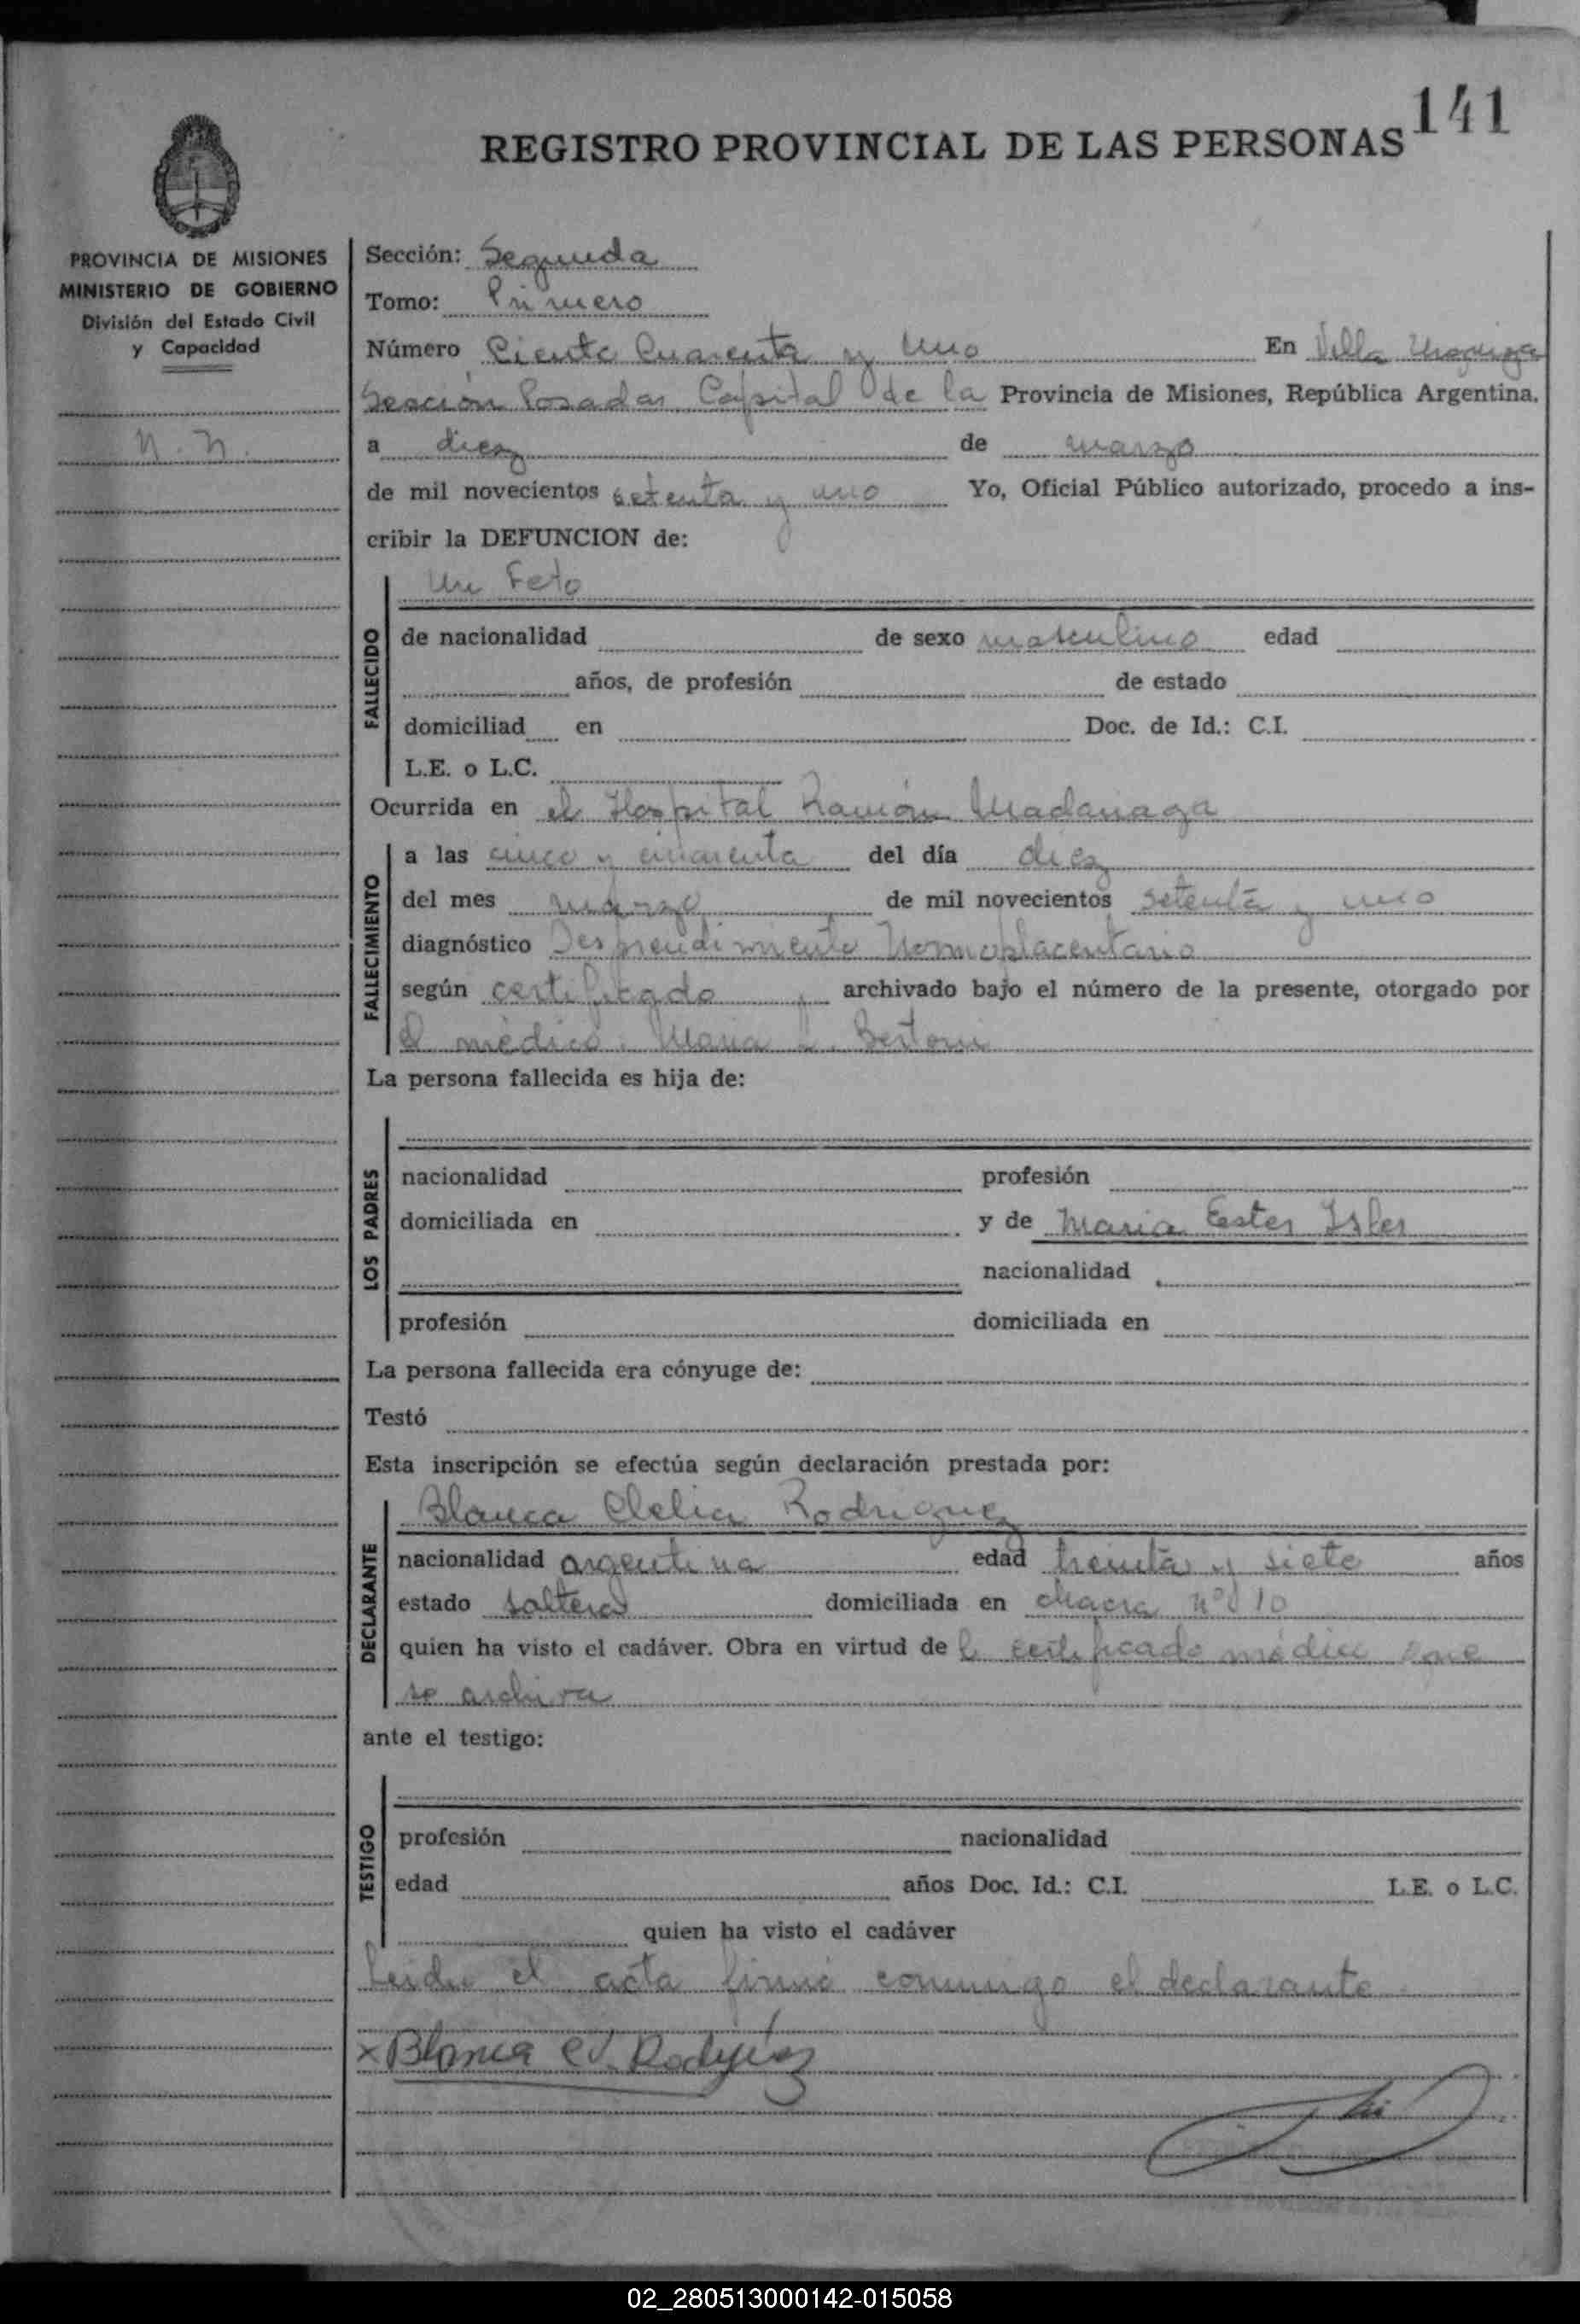 141
REGISTRO PROVINCIAL DE LAS PERSONAS
PROVINCIA DE MISIONES
MINISTERIO DE GOBIERNO
División del Estado Civil
y Capacidad
N. N.
Sección: Segunda
Tomo: Primero
Número Ciento Cuarenta y Uno En Villa Urquiza
Sección Posadas Capital de la Provincia de Misiones, República Argentina,
a diez de marzo
de mil novecientos setenta y uno Yo, Oficial Público autorizado, procedo a ins-
cribir la DEFUNCION de:
FALLECIDO
Un Feto
de nacionalidad de sexo masculino edad
años, de profesión de estado
domiciliad en Doc. de Id.: C.I.
L.E. o L.C.
Ocurrida en el Hospital Ramón Madariaga
FALLECIMIENTO
a las cinco y cuarenta del día diez
del mes marzo de mil novecientos setenta y uno
diagnóstico Desprendimiento
según certificado archivado bajo el número de la presente, otorgado por
el médico: Maria L. Bertoni
La persona fallecida es hija de:
LOS PADRES
nacionalidad profesión
domiciliada en y de Maria Ester Isler
nacionalidad
profesión domiciliada en
La persona fallecida era cónyuge de:
Testó
Esta inscripción se efectúa según declaración prestada por:
DECLARANTE
Blanca Clelia Rodriguez
nacionalidad argentina edad treinta y siete años
estado soltera domiciliada en chacra nº 10
quien ha visto el cadáver. Obra en virtud de certificado médico que
se archiva
ante el testigo:
TESTIGO
profesión nacionalidad
edad años Doc. Id.: C.I. L.E. o L.C.
quien ha visto el cadáver
Leida el acta firma conmigo el declarante
x Blanca C. Rodriguez
02_280513000142-015058